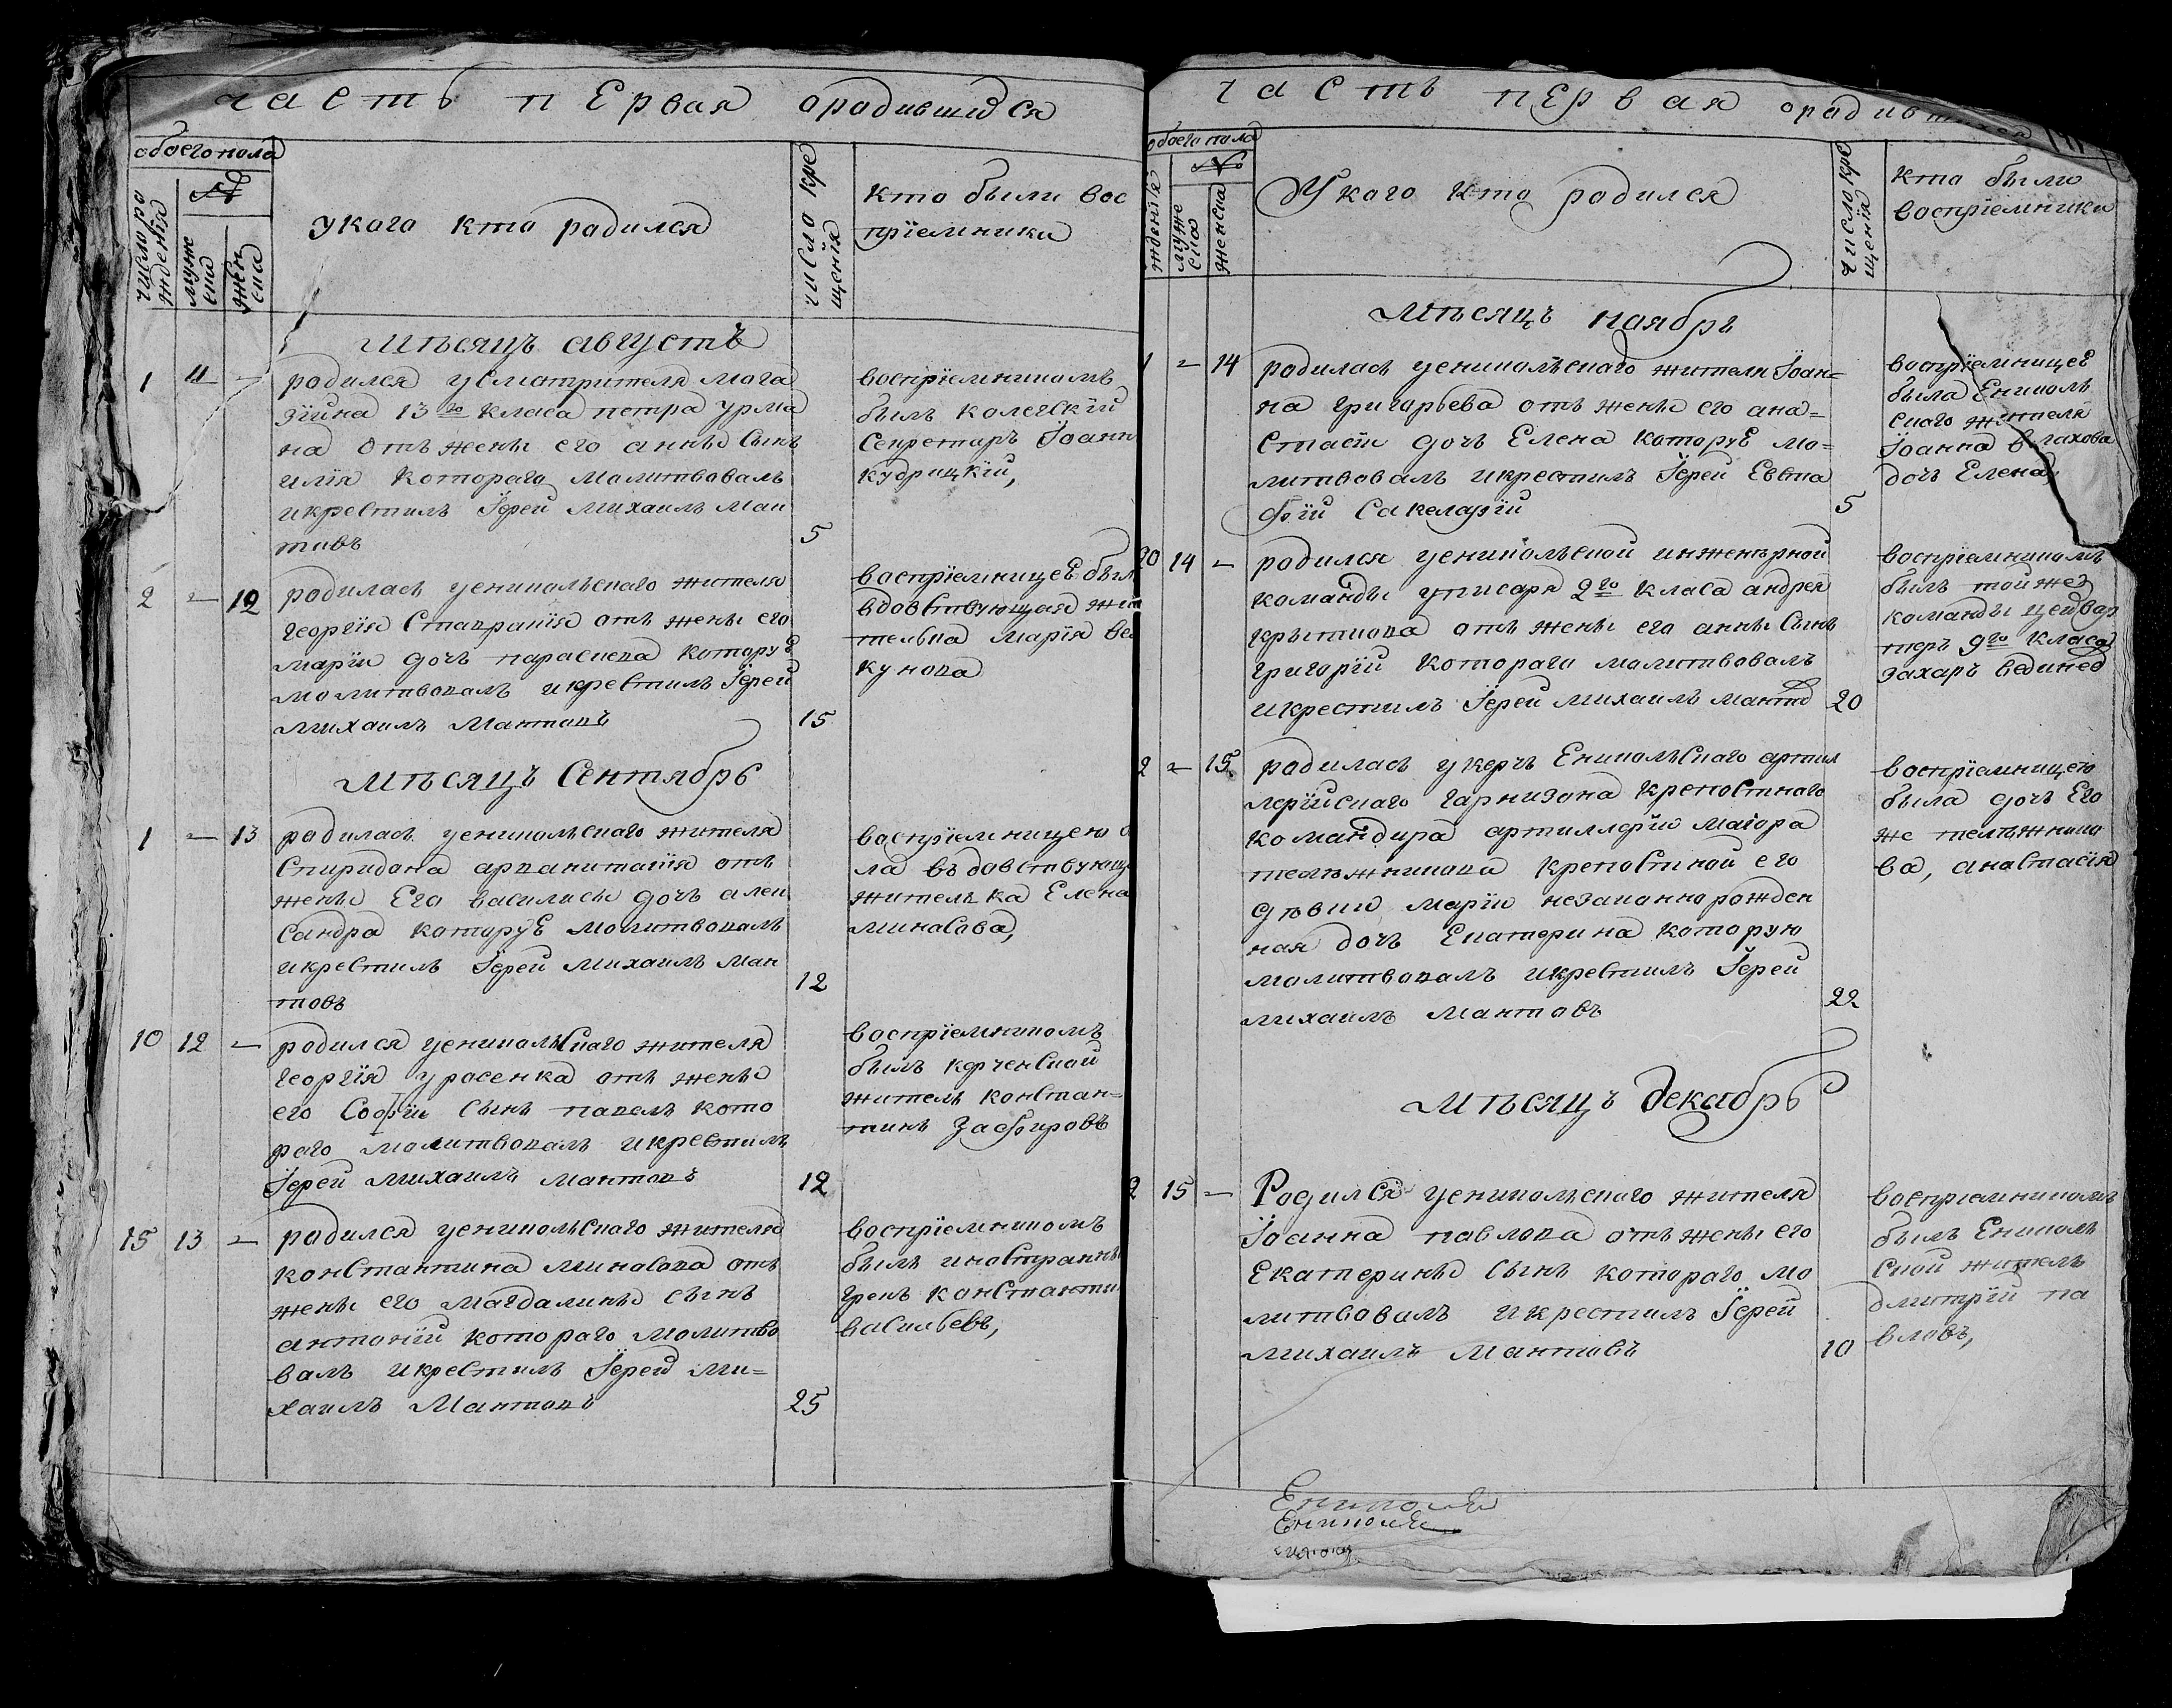 часть первая ородившихся
обоего пола
№
число ро
ждения
муже
ска
жен
ска
укого кто родился
число кре
щения
кто были вос
приемники
мѣсяцъ августъ
1 11 –
родился усмотрителя мога
зїйна 13го класа петра урма
на отъ жены его анны сынъ
илїя котораго молитвовалъ
икрестилъ Їерей михаилъ ман
товъ
5
воспрїемникомъ
былъ колегскїй
секретаръ Їоаннъ
кудрицкїй,
2 – 12
родилась уеникольскаго жителя
георгїя Ставракїя отъ жены его
марїи дочь параскева которуѣ
молитвовалъ икрестилъ Їерей
михаилъ Мантовъ
15
воспрїемницеѣ был
вдовствующая жи
телька марїя ве
кунова
мѣсяцъ Сентябрь
1 – 13
родилась уеникольскаго жителя
Спиридона арванитакїя отъ
жены Его василисы дочь алек
сандра которуѣ молитвовалъ
икрестилъ Їерей михаилъ ман
товъ
12
воспрїемницею б
ла въдовствующа
жителька Елена
минасова,
10 12 –
родился уеникольскаго жителя
георгїя уросенка отъ жены
его Софїи сынъ павелъ кото
раго молитвовалъ икрестилъ
Їерей михаилъ мантовъ
12
воспрїемникомъ
былъ керченской
житель констан=
тинъ Зафировъ
15 13 –
родился уеникольскаго жителя
константина минасова отъ
жены его магдалины сынъ
антонїй котораго молитво
валъ икрестилъ Їерей ми=
хаилъ Мантовъ
25
воспрїемникомъ
былъ иностранны
грекъ константи
васильевъ,
часть первая ородившихся
обоего пола
№
ждения
муже
ска
женска
Укого кто родился
число кре
щенїя
кто были
воспрїемники
Мѣсяцъ ноябрь
1 – 14
родилась уеникольскаго жителя Їоан=
на григорьева отъ жены его ана=
стасїи дочь Елена которуѣ мо=
литвовалъ икрестилъ Їерей Евста
фїй Сакеларїй
5
воспрїемницеѣ
была Ениколь
скаго жителя
Їоанна влахова
дочь Елена,
20 14 –
родился уеникольской инженѣрной
команды уписаря 2го класа андрея
крытиова отъ жены его анны сынъ
григорїй котораго молитвовалъ
икрестилъ Їерей михаилъ манто
20
воспрїемникомъ
былъ тойже
команды цейвар
теръ 9го класа
захаръ вединев
2 – 15
родилась укерчъ Еникольскаго артил
лерїйскаго гарнизона крепостнаго
командира артиллерїи маїора
телѣжникова крепостной его
дѣвки марїи незаконнорожден
ная дочь Екатерина которую
молитвовалъ икрестилъ Їерей
михаилъ мантовъ
22
воспрїемницею
была дочь Его
же телѣжнико
ва, анастасїя
мѣсяцъ декабрь
2 15 –
Родился уеникольскаго жителя
Їоанна павлова отъ жены его
Екатерины сынъ котораго мо
литвовалъ икрестилъ Їерей
михаилъ мантовъ
10
воспрїемникомъ
былъ Ениколь
ской житель
дмитрїй па
вловъ,
Ениколѣ
Ениколѣ